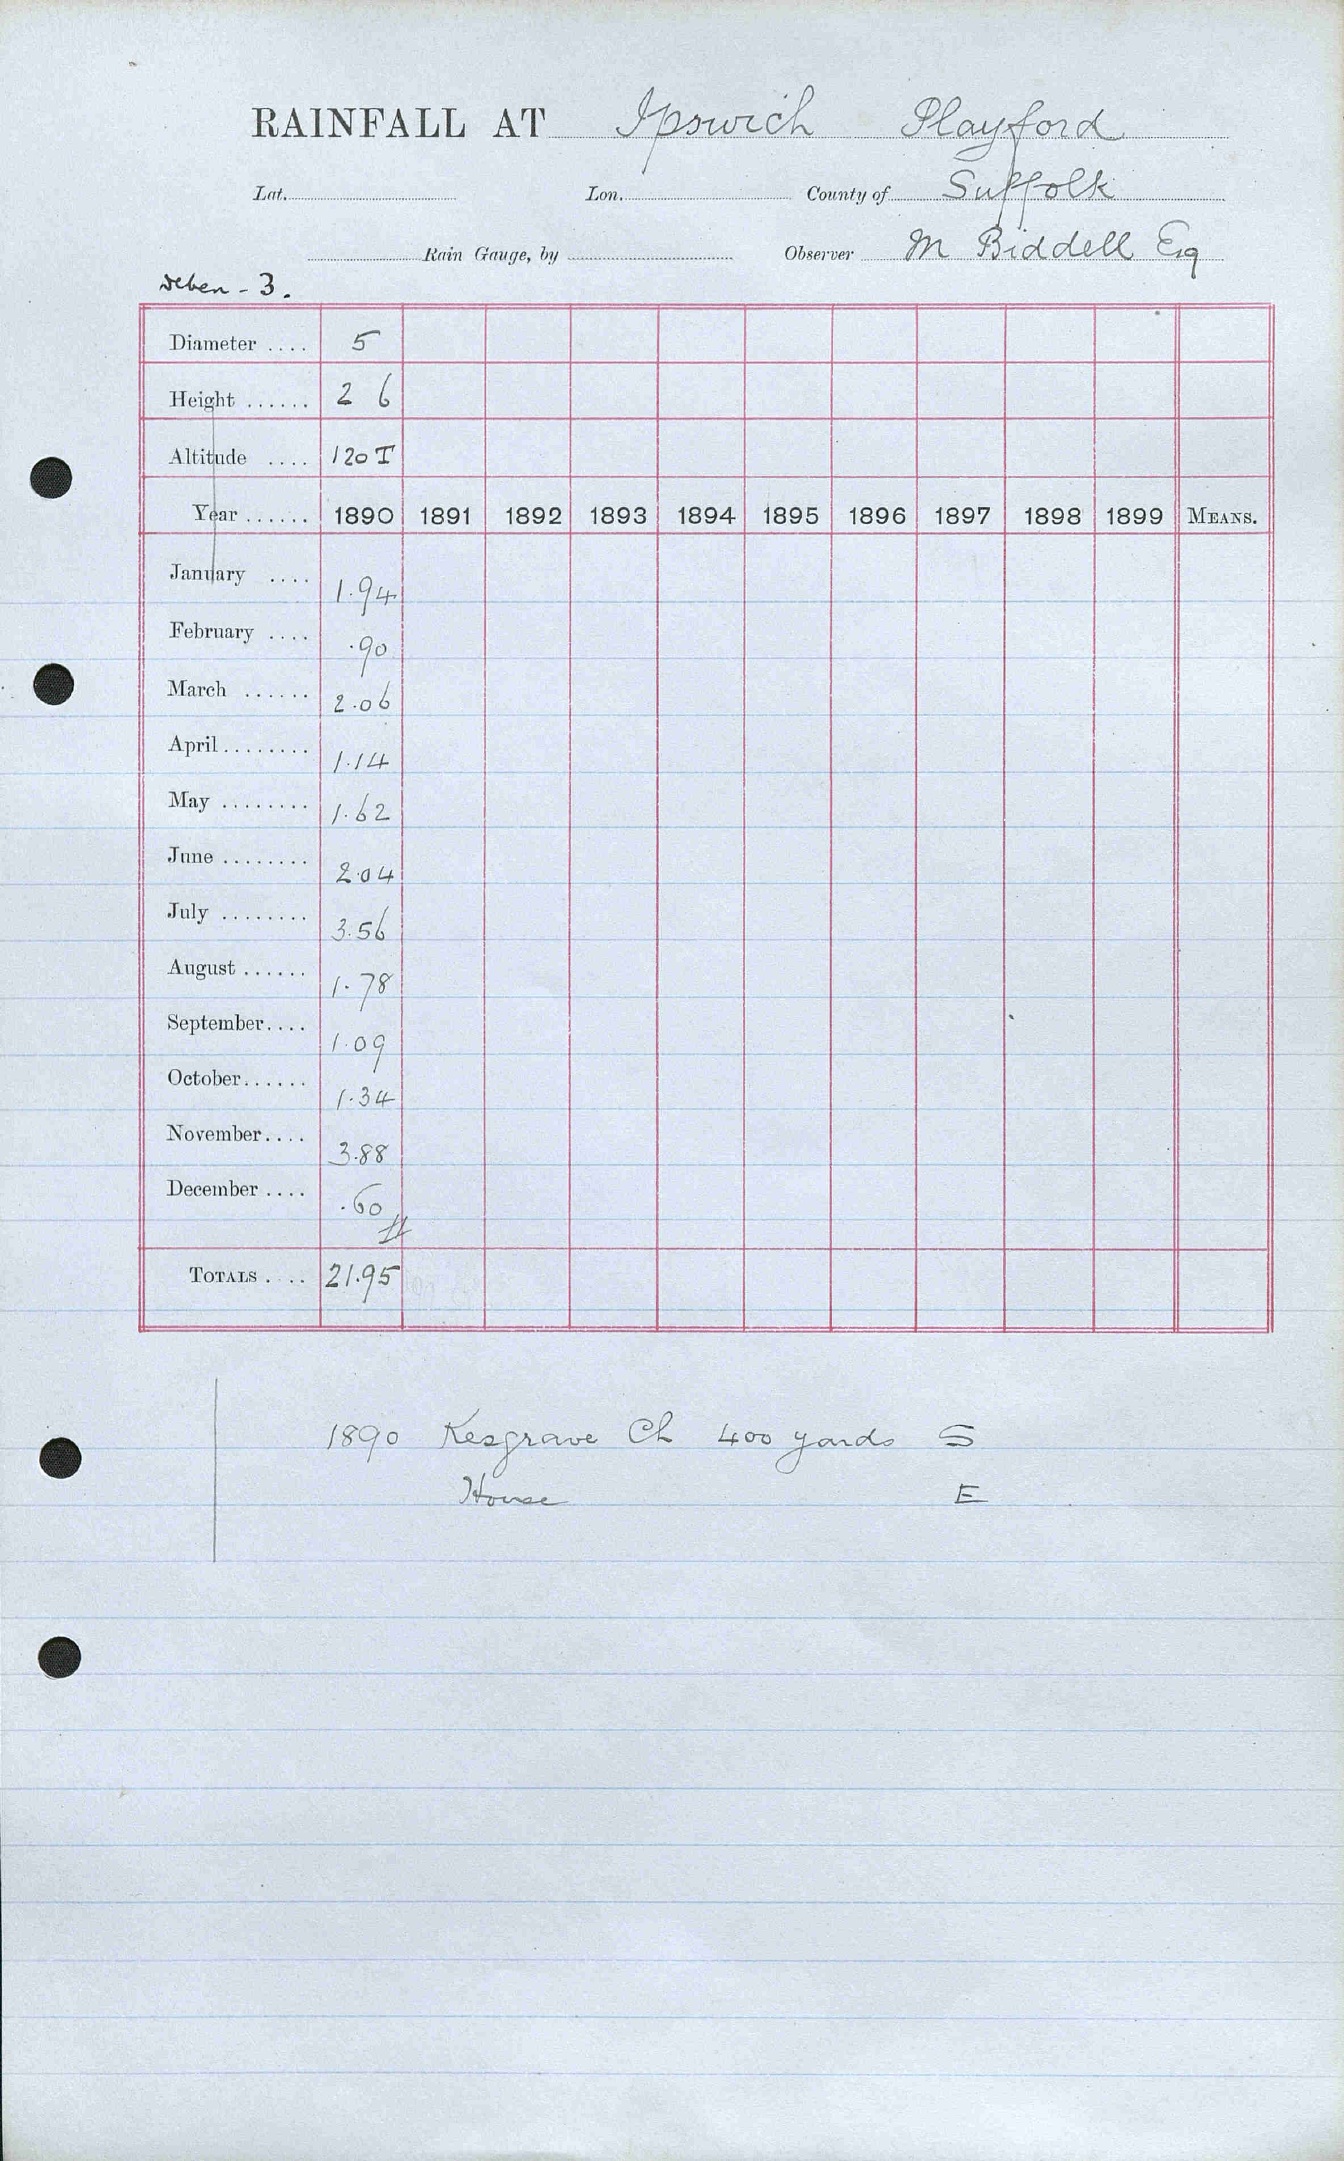 RAINFALL AT Ipswich Playford
Lat. Lon. County of Suffolk
Rain Gauge, by Observer M Biddell Esq
Deben - 3.
Diameter .... 5
Height ...... 2 6
Altitude .... 120 T
Year ...... 1890 1891 1892 1893 1894 1895 1896 1897 1898 1899 MEANS.
January .... 1.94
February .... .90
March ...... 2.06
April ........ 1.14
May ........ 1.62
June ........ 2.04
July ........ 3.56
August ...... 1.78
September .... 1.09
October ...... 1.34
November .... 3.88
December .... .60
TOTALS .... 21.95
1890 Kesgrave Ch 400 yards S
House E